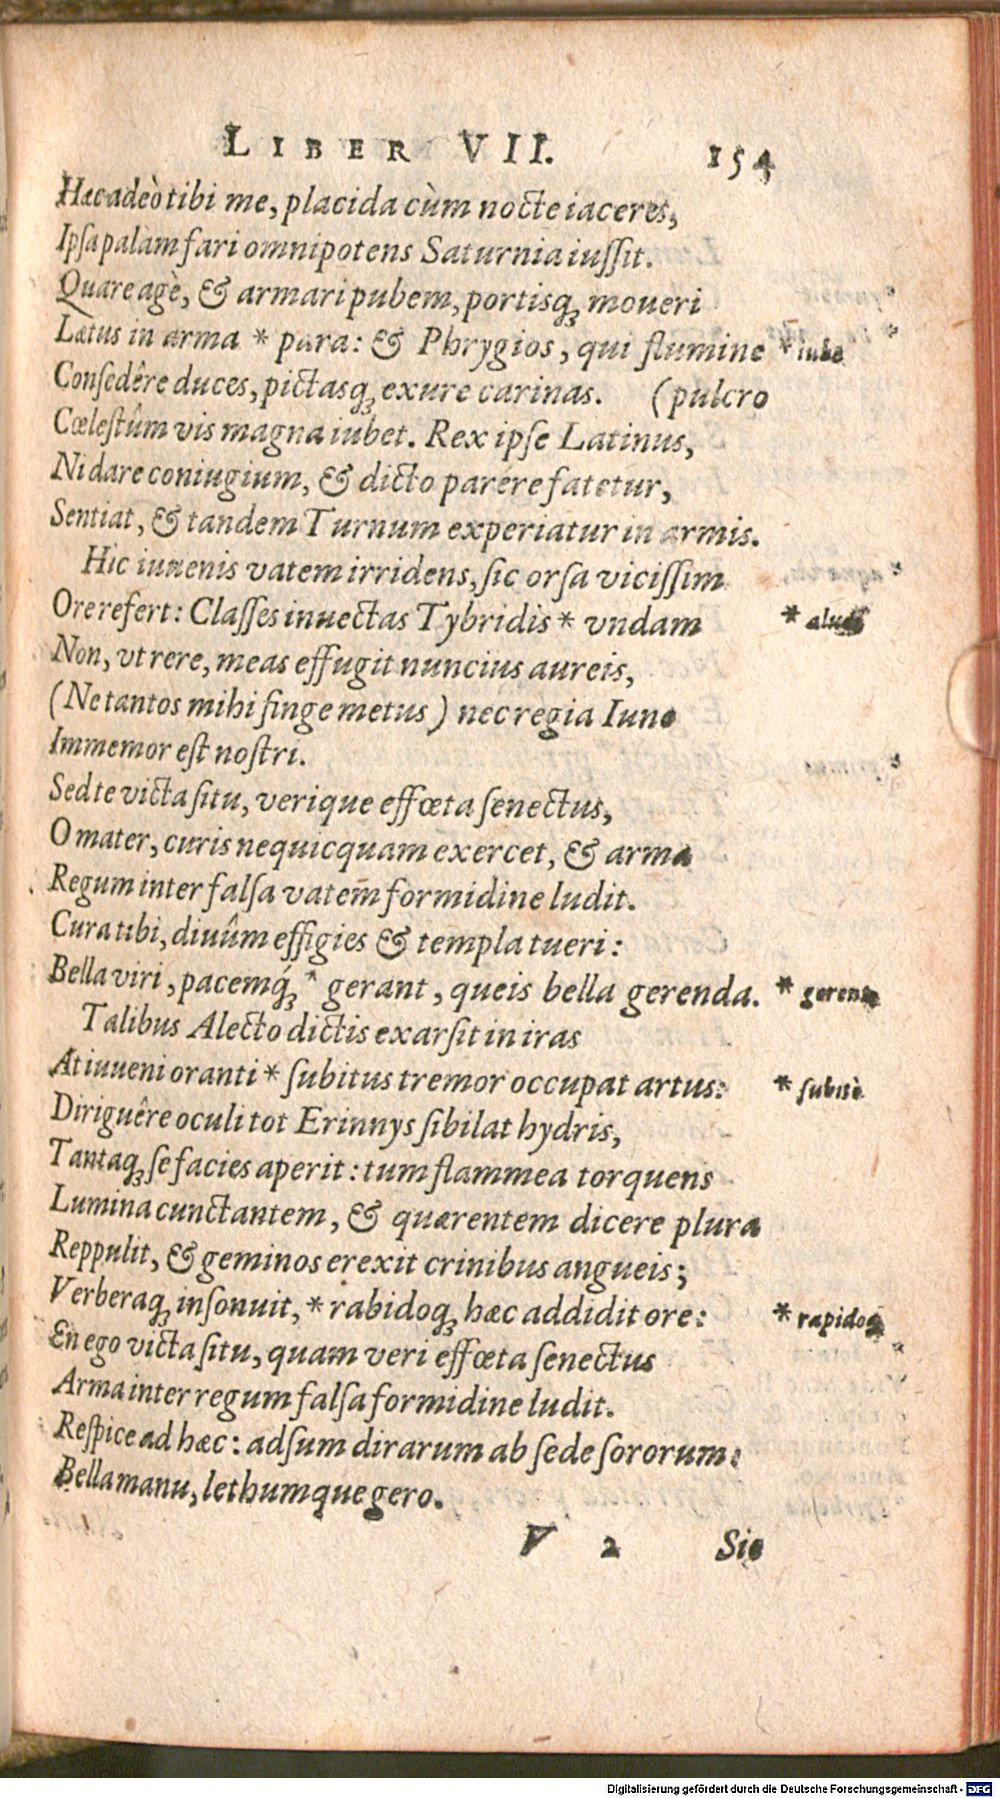 LIBER VII. 154
Hæc adeò tibi me, placida cùm nocte iaceres,
Ipsa palam fari omnipotens Saturnia iussit.
Quare agè, & armari pubem, portisq; moueri
Lætus in arma * para: & Phrygios, qui flumine * iube
Consedêre duces, pictasq; exure carinas. (pulcro
Cœlestûm vis magna iubet. Rex ipse Latinus,
Ni dare coniugium, & dicto parére fatetur,
Sentiat, & tandem Turnum experiatur in armis.
Hic iuuenis vatem irridens, sic orsa vicissim
Ore refert: Classes inuectas Tybridis * vndam * alueo
Non, vt rere, meas effugit nuncius aureis,
(Ne tantos mihi finge metus) nec regia Iuno
Immemor est nostri.
Sed te victa situ, verique effœta senectus,
O mater, curis nequicquam exercet, & arma
Regum inter falsa vatem formidine ludit.
Cura tibi, diuûm effigies & templa tueri:
Bella viri, pacemq́; * gerant, queis bella gerenda. * gerent
Talibus Alecto dictis exarsit in iras
At iuueni oranti * subitus tremor occupat artus: * subitò
Diriguêre oculi tot Erinnys sibilat hydris,
Tantaq; se facies aperit: tum flammea torquens
Lumina cunctantem, & quærentem dicere plura
Reppulit, & geminos erexit crinibus angueis;
Verberaq; insonuit, * rabidoq; hæc addidit ore: * rapidoq;
En ego victa situ, quam veri effœta senectus
Arma inter regum falsa formidine ludit.
Respice ad hæc: adsum dirarum ab sede sororum:
Bella manu, lethumque gero.
V 2 Sic
Digitalisierung gefördert durch die Deutsche Forschungsgemeinschaft - DFG